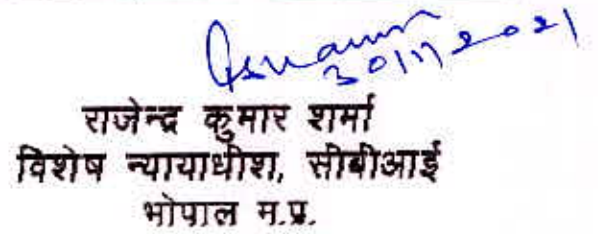 30/11/2021
राजेन्द्र कुमार शर्मा
विशेष न्यायाधीश, सीबीआई
भोपाल म.प्र.